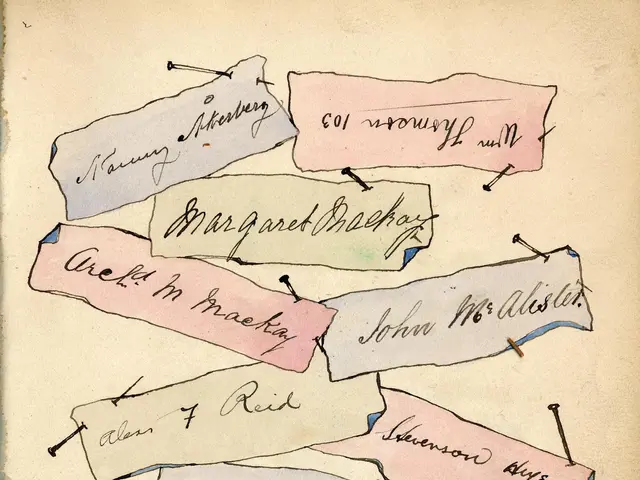 Nanny Åkerberg
Wm Thomson 103
Margaret Mackay
Archd. M Mackay
John McAlister.
Alexr F Reid
Stevenson